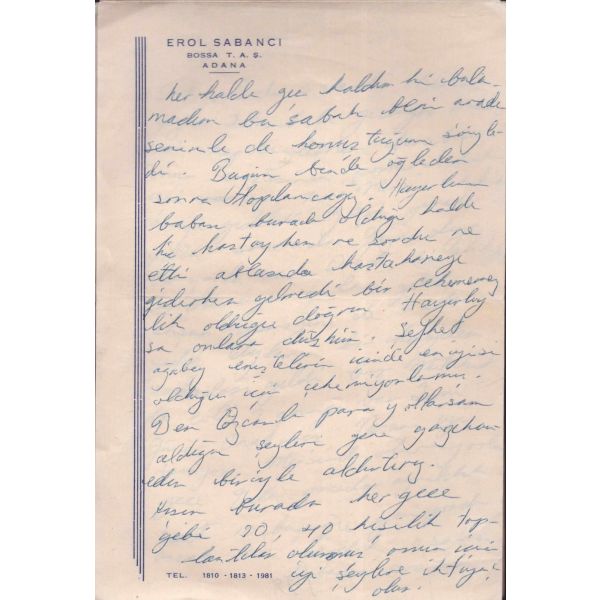 EROL SABANCI
BOSSA T. A. Ş.
ADANA
her halde gece kaldım ki bula-
madım bu sabah beni arada
seninle de konuştuğunu söyle
di. Bugün bende öğleden
sonra toplanacağız.
babası burada olduğu halde
hiç hastayken ne sordu ne
etti hastahaneye
giderken gelmedi bir çekememez
lik olduğu doğru
sa onlara düşkün.
ağabey eniştelerin içinde en iyisi
olduğu için çekemiyorlarmış.
Ben Özcanla para yollarsam
aldığın şeyleri gene
eden biriyle aldırtırız.
burada her gece
gibi 30, 40 kişilik top-
lantılar oluyormuş onun için
iyi şeylere ihtiyacı
olur.
TEL. 1810 · 1813 · 1981